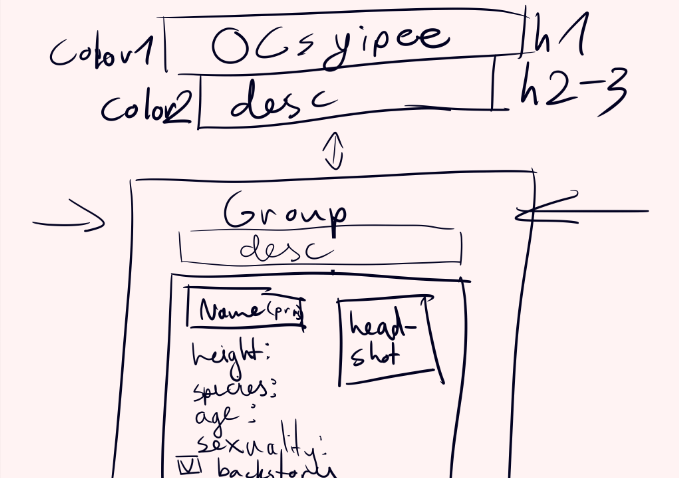 Color1 OCs yipee h1
Color2 desc h2-3
Group
desc
Name(prns) head-
shot
height:
species:
age:
sexuality:
backstory